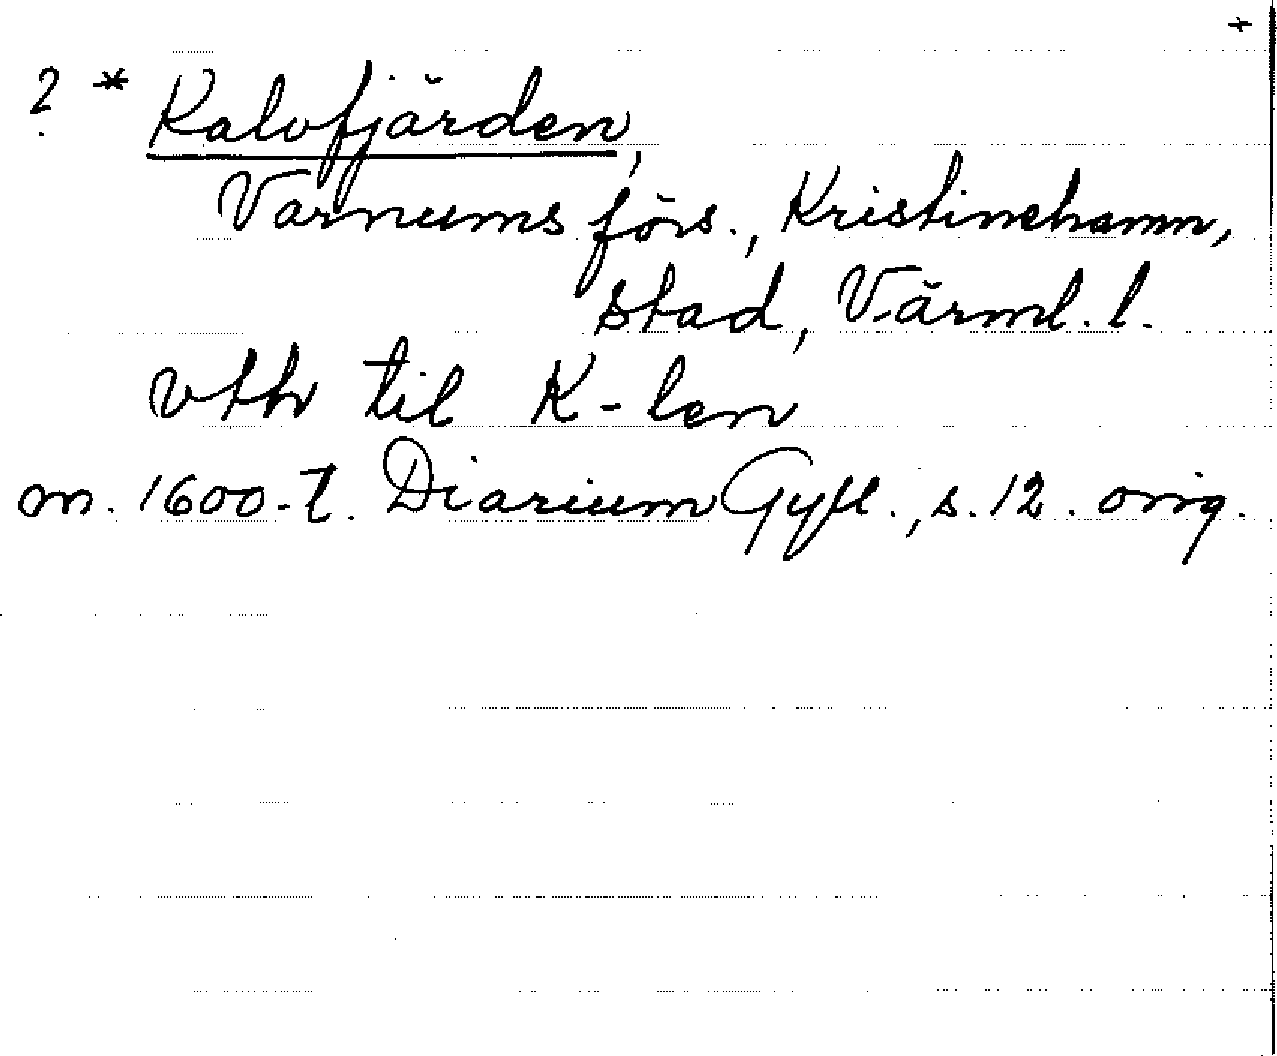 +
? * Kalvfjärden,
Varnums förs., Kristinehamn,
stad, Värml. l.
vthr til K-len
m. 1600-t. Diarium Gyll., s. 12. orig.